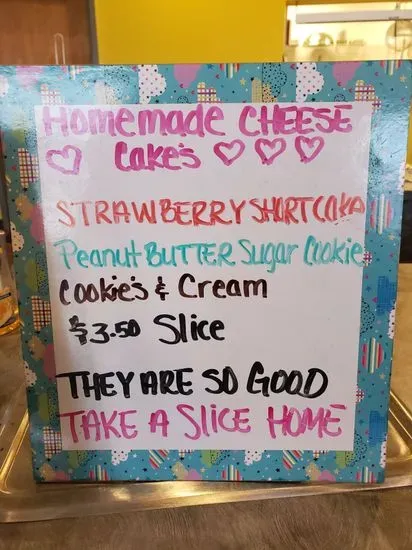 Homemade CHEESE
Cake's
STRAWBERRY SHORTCAKE
Peanut BUTTER Sugar Cookie
Cookie's & Cream
$3.50 Slice
THEY ARE SO GOOD
TAKE A Slice HOME